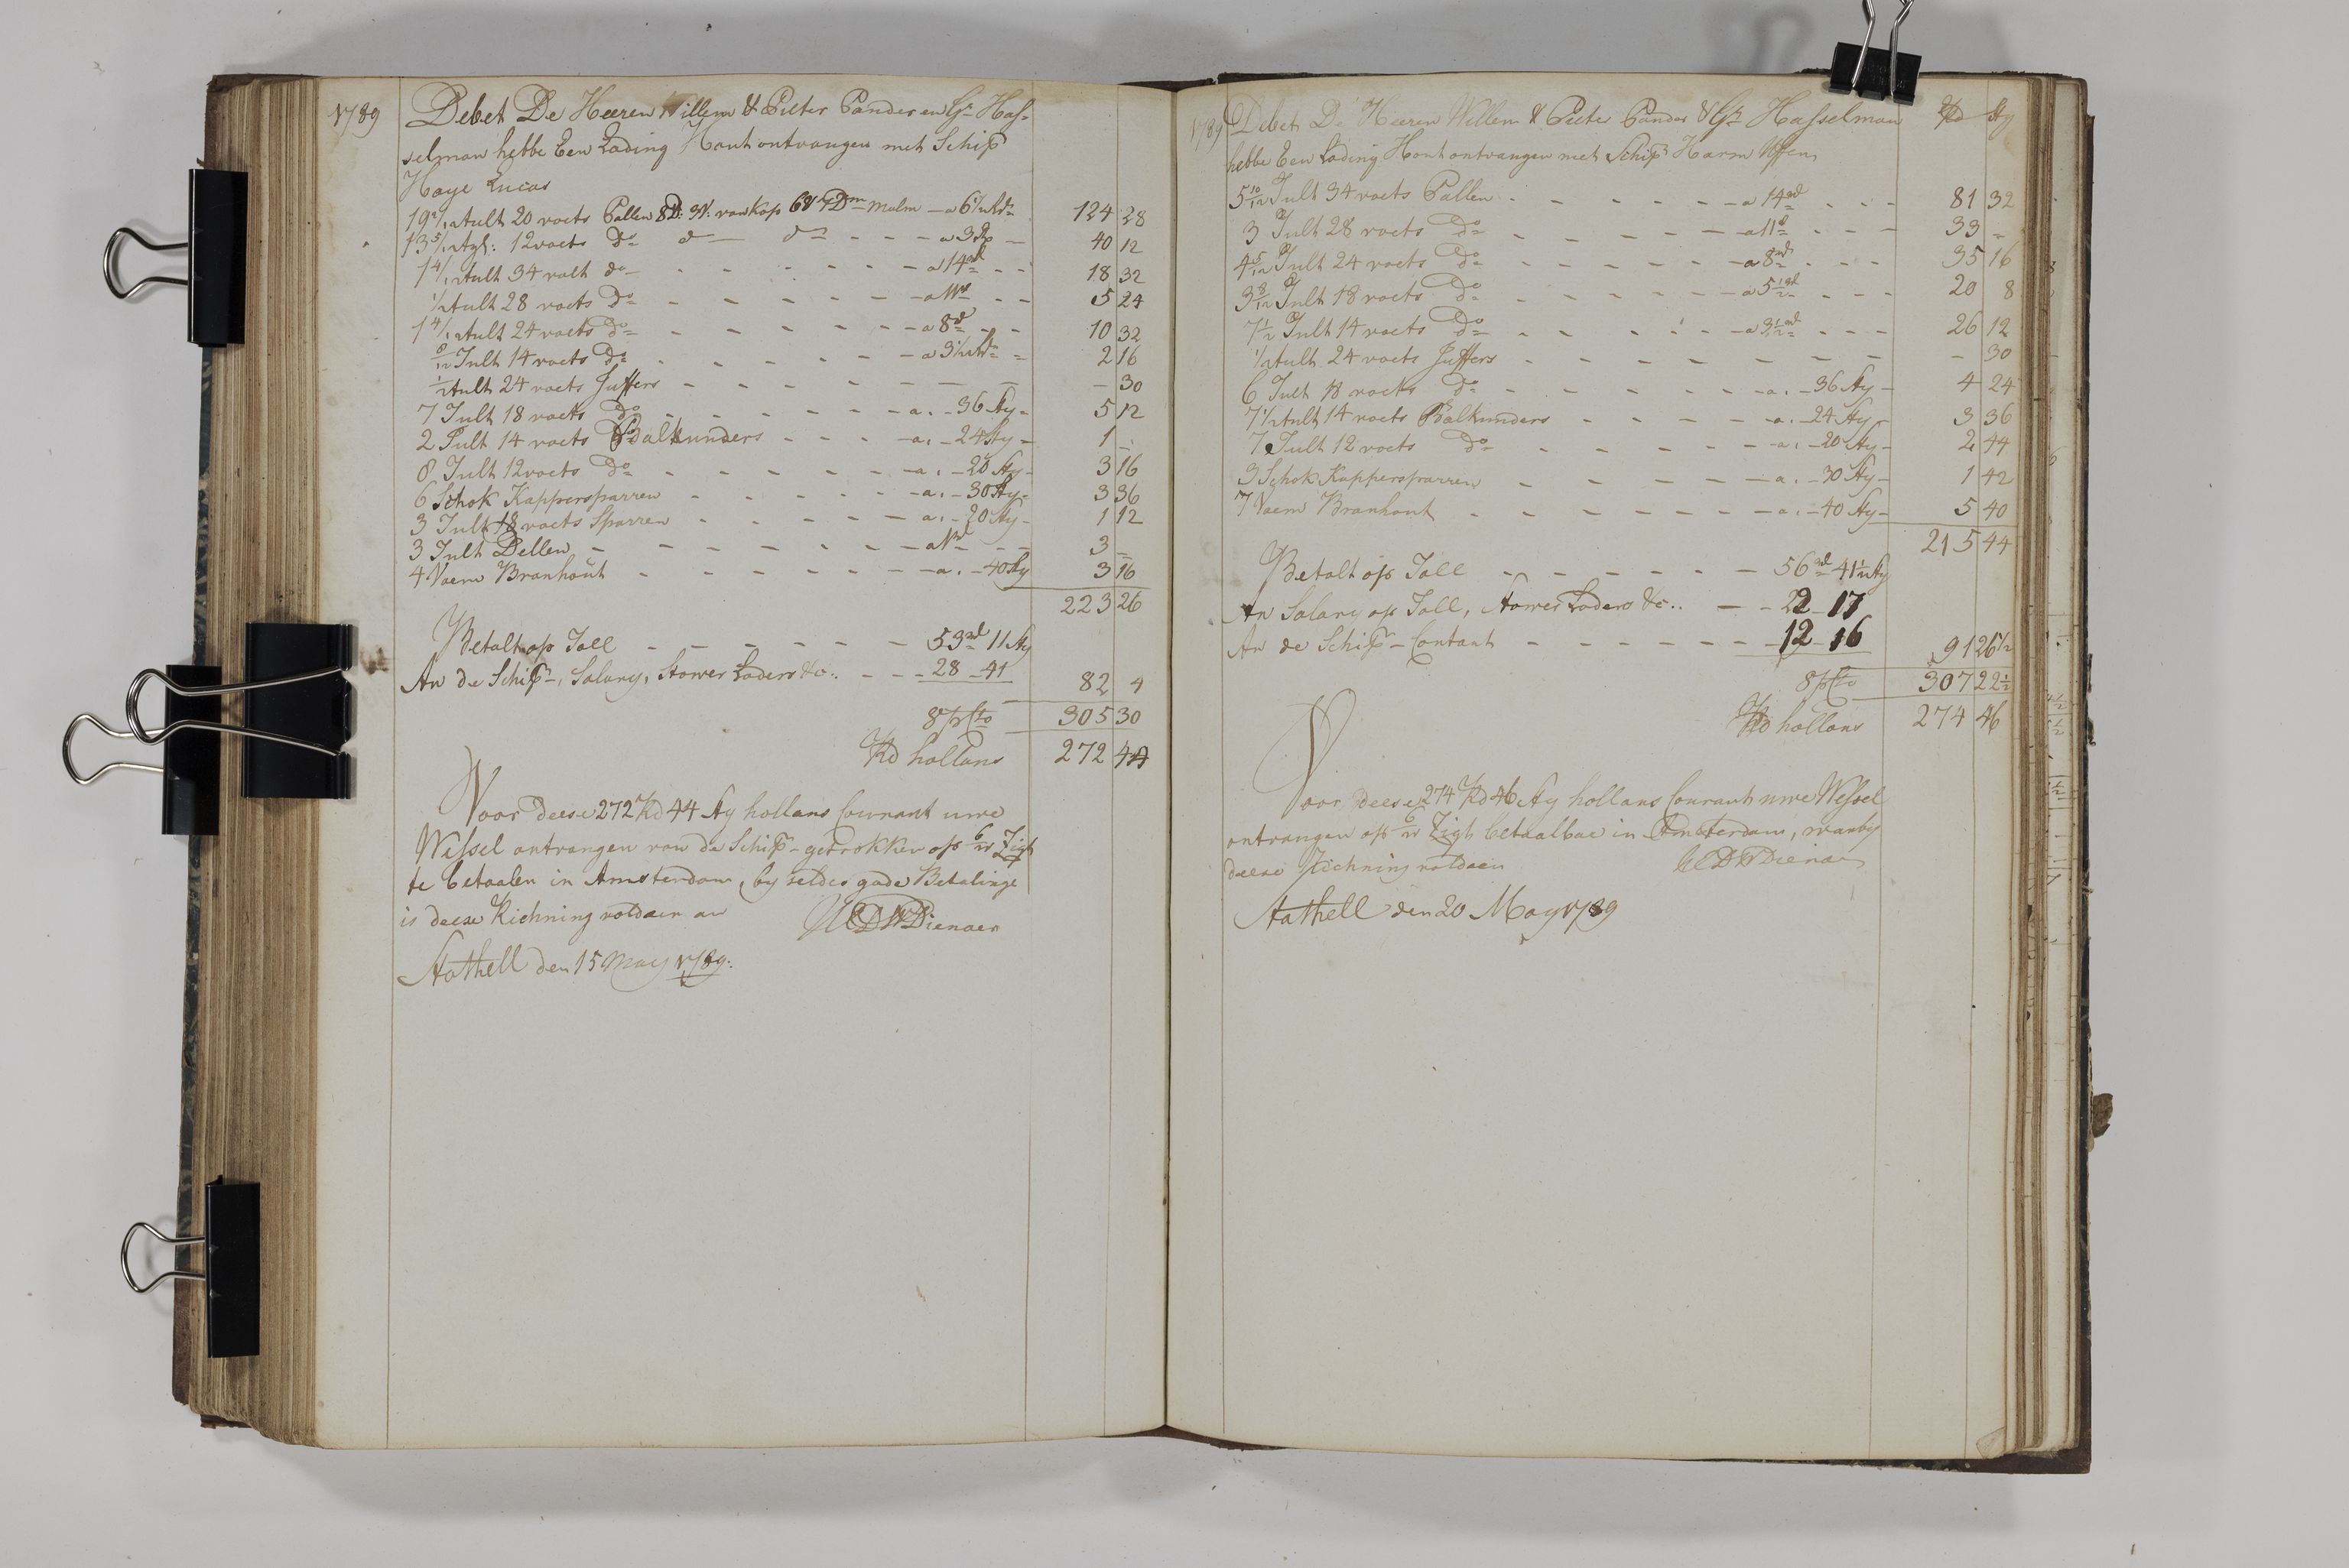 1789
Debet De Heeren Willem & Pieter Pander en Has-
selman hebbe Een Lading Hout ontvangen met Schip
Haye Lucas
19 2/12 tult 20 voets Pallen 8D: 3V: van Kop 6 & 7 Dm malm - a 6 1/2 rd 124 28
13 5/12 12 voets do do do - - - a 3 rd - 40 12
1 4/12 tult 34 voets do - - - - - a 14 rd - - 18 32
1/2 tult 28 voets do - - - - - a 11 rd - - 5 24
1 4/12 tult 24 voets do - - - - - a 8 rd - - 10 32
8/12 Tult 14 voets do - - - - - a 3 1/2 rd - 2 16
1/2 tult 24 voets Juffers - - - - - - - 30
7 Tult 18 voets do - - - - - a. - 36 sty - 5 12
2 Tult 14 voets Balkunders - - - a. - 24 sty - 1 -
8 Tult 12 voets do - - - - - a. - 20 sty - 3 16
6 Schok Kappersparren - - - - a. - 30 sty - 3 36
3 Tult 18 voets Sparren - - - - a. - 20 sty - 1 12
3 Tult Dellen - - - - - - a 1 rd - - 3 -
4 Vaem Branhout - - - - - a. - 40 sty 3 16
223 26
Betalt op Toll - - - - - - 53 rd 11 sty
An de Schipr, Salary, Stower Loders &c: - - - 28 - 41 82 4
8 pCto 305 30
Rd hollans 272 44
Voor deese 272 Rd 44 sty hollans Courant uwe
Wissel ontvangen van de Schipr getrokken op 6 w Zigt
te betaalen in Amsterdam, by selder gade Betalinge
is deese Richning voldaen an UEDWDienaer
Stathell den 15 May 1789:
1789 Debet De Heeren Willem & Pieter Pander & Hasselman Rd sty
hebbe Een Lading Hout ontvangen met Schipr Harm
5 10/12 Tult 34 voets Pallen - - - - - a 14 rd - - - 81 32
3 Tult 28 voets do - - - - - a 11 rd - - - 33 -
4 5/12 Tult 24 voets do - - - - - a 8 rd - - - 35 16
3 8/12 Tult 18 voets do - - - - - a 5 1/2 rd - - - 20 8
7 1/2 Tult 14 voets do - - - - - a 3 1/2 rd - - - 26 12
1/2 tult 24 voets Juffers - - - - - - - - 30
6 Tult 18 voets do - - - - - a. - 36 sty - 4 24
7 1/2 tult 14 voets Balkunders - - - - a. - 24 sty - 3 36
7 Tult 12 voets do - - - - - a. - 20 sty - 2 44
3 Schok Kappersparren - - - - - a. - 30 sty - 1 42
7 Vaem Branhout - - - - - - a. - 40 sty - 5 40
215 44
Betalt op Toll - - - - - - 56 rd 41 1/2 sty
An Salary op Toll, Stower Loders &c.. - - 22 - 17
An de Schipr Contant - - - - - - 12 - 16 91 26 1/2
8 pCto 307 22 1/2
Rd hollans 274 46
Voor deese 274 Rd 46 sty hollans Courant uwe Wissel
ontvangen op 6 w Zigt betaalbar in Amsterdam, waarby
deese Richning voldaen UEDWDienaer
Stathell den 20 May 1789